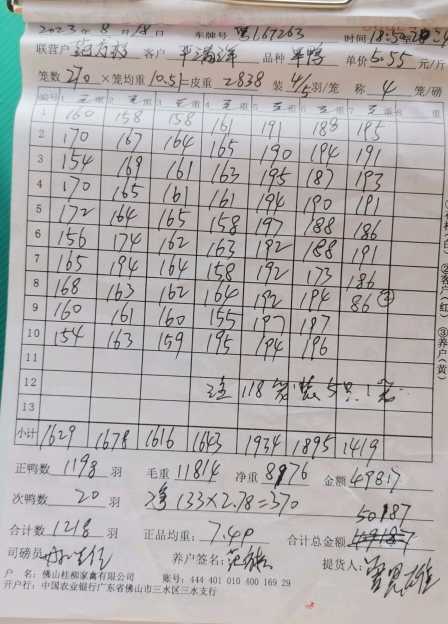 2023年8月18日 车牌号 粤L67263 时间18:50
联营户 客户 平满洋 品种 平鸭 单价5.55元/斤
笼数270×笼均重10.51=皮重2838 装4/5羽/笼 称4笼/磅
编号
1 160 158 158 161 191 188 195
2 170 167 164 165 190 194 191
3 154 169 161 163 195 187 193
4 170 165 161 161 194 190 191
5 172 164 165 158 197 188 186
6 156 174 162 163 192 188 191
7 165 194 164 158 192 173 186
8 168 163 162 164 192 194 86②
9 160 161 160 155 197 197
10 154 163 159 195 194 196
11
12 注118笼装5只/笼
13
小计 1629 1678 1616 1643 1934 1895 1419
正鸭数 1198 羽 毛重 11814 净重 8976 金额 49817
次鸭数 20 羽 净133×2.78=370 50187
合计数 1218 羽 正品均重:7.49 合计总金额
司磅员 养户签名: 提货人:
户 名:佛山桂柳家禽有限公司 账号:444 401 010 400 169 29
开户行:中国农业银行广东省佛山市三水区三水支行
②客户(红)
③养户(黄)